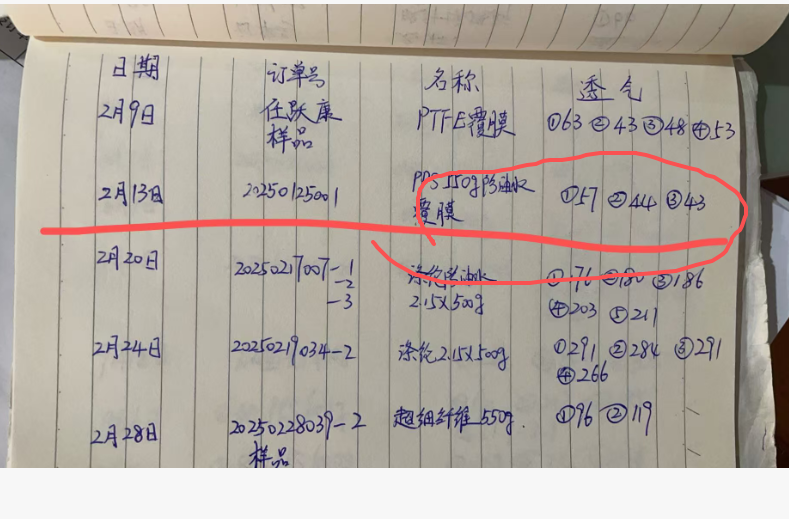 日期 订单号 名称 透气
2月9日 任跃康 PTFE覆膜 ①63 ②43 ③48 ④53
样品
2月13日 20250125001 PPS 550g防油水 ①57 ②44 ③43
覆膜
2月20日 20250217007-1 涤纶防油水 ①176 ②180 ③186
-2
-3 2.15X500g ④203 ⑤211
2月24日 20250219034-2 涤纶2.15X500g ①291 ②284 ③291
④266
2月28日 20250228039-2 超细纤维550g. ①96 ②119
样品